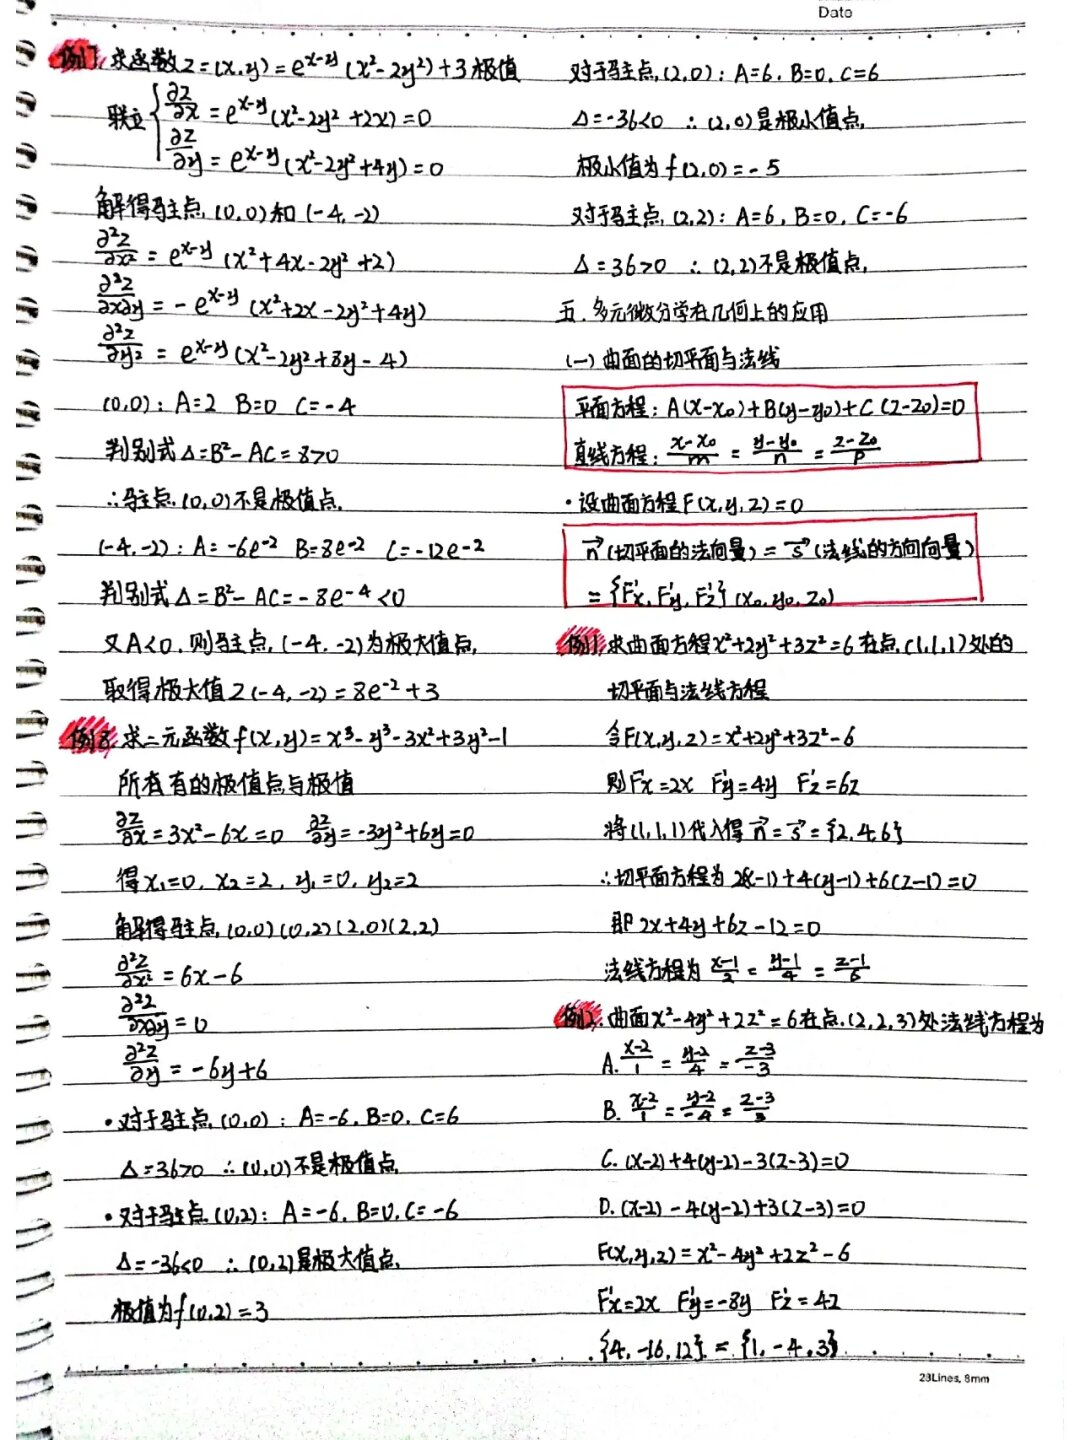 Date
例7.求函数z=(x,y)=e^{x-y}(x²-2y²)+3极值
联立{∂z/∂x=e^{x-y}(x²-2y²+2x)=0
∂z/∂y=e^{x-y}(x²-2y²+4y)=0
解得驻点(0,0)和(-4,-2)
∂²z/∂x²=e^{x-y}(x²+4x-2y²+2)
∂²z/∂x∂y=-e^{x-y}(x²+2x-2y²+4y)
∂²z/∂y²=e^{x-y}(x²-2y²+8y-4)
(0,0):A=2 B=0 C=-4
判别式Δ=B²-AC=8>0
∴驻点(0,0)不是极值点.
(-4,-2):A=-6e^{-2} B=8e^{-2} C=-12e^{-2}
判别式Δ=B²-AC=-8e^{-4}<0
又A<0,则驻点(-4,-2)为极大值点,
取得极大值z(-4,-2)=8e^{-2}+3
例8.求二元函数f(x,y)=x³-y³-3x²+3y²-1
所有有的极值点与极值
∂z/∂x=3x²-6x=0 ∂z/∂y=-3y²+6y=0
得x₁=0,x₂=2,y₁=0,y₂=2
解得驻点(0,0)(0,2)(2,0)(2,2)
∂²z/∂x²=6x-6
∂²z/∂x∂y=0
∂²z/∂y=-6y+6
·对于驻点(0,0):A=-6,B=0,C=6
Δ=36>0 ∴(0,0)不是极值点
·对于驻点(0,2):A=-6,B=0,C=-6
Δ=-36<0 ∴(0,2)是极大值点,
极值为f(0,2)=3
对于驻点(2,0):A=6,B=0,C=6
Δ=-36<0 ∴(2,0)是极小值点,
极小值为f(2,0)=-5
对于驻点(2,2):A=6,B=0,C=-6
Δ=36>0 ∴(2,2)不是极值点,
五.多元微分学在几何上的应用
(一)曲面的切平面与法线
平面方程:A(x-x₀)+B(y-y₀)+C(z-z₀)=0
直线方程:(x-x₀)/m=(y-y₀)/n=(z-z₀)/p
·设曲面方程F(x,y,z)=0
n⃗(切平面的法向量)=s⃗(法线的方向向量)
={F'x,F'y,F'z}(x₀,y₀,z₀)
例1.求曲面方程x²+2y²+3z²=6在点(1,1,1)处的
切平面与法线方程
令F(x,y,z)=x²+2y²+3z²-6
则F'x=2x F'y=4y F'z=6z
将(1,1,1)代入得n⃗=s⃗={2,4,6}
∴切平面方程为2(x-1)+4(y-1)+6(z-1)=0
即2x+4y+6z-12=0
法线方程为(x-1)/2=(y-1)/4=(z-1)/6
例2.曲面x²-4y²+2z²=6在点(2,2,3)处法线方程为
A.(x-2)/1=(y-2)/4=(z-3)/-3
B.(x-2)/1=(y-2)/-4=(z-3)/3
C.(x-2)+4(y-2)-3(z-3)=0
D.(x-2)-4(y-2)+3(z-3)=0
F(x,y,z)=x²-4y²+2z²-6
F'x=2x F'y=-8y F'z=4z
{4,-16,12}={1,-4,3}
28Lines, 8mm